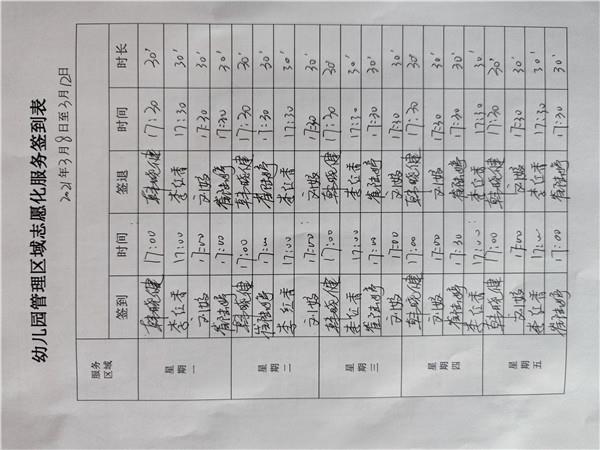 幼儿园管理区域志愿化服务签到表
2021年3月8日至3月12日
服务区域 签到 时间 签退 时间 时长
星期一 韩晓健 17:00 韩晓健 17:30 30'
李红香 17:00 李红香 17:30 30'
刘 17:00 刘 17:30 30'
崔 婷 17:00 崔 婷 17:30 30'
星期二 韩晓健 17:00 韩晓健 17:30 30'
崔 婷 17:00 崔 婷 17:30 30'
李红香 17:00 李红香 17:30 30'
刘 17:00 刘 17:30 30'
星期三 韩晓健 17:00 韩晓健 17:30 30'
李红香 17:00 李红香 17:30 30'
崔 婷 17:00 崔 婷 17:30 30'
刘 17:00 刘 17:30 30'
星期四 韩晓健 17:00 韩晓健 17:30 30'
刘 17:00 刘 17:30 30'
崔 婷 17:30 崔 婷 17:30 30'
李红香 17:00 李红香 17:30 30'
星期五 韩晓健 17:00 韩晓健 17:30 30'
刘 17:00 刘 17:30 30'
李红香 17:00 李红香 17:30 30'
崔 婷 17:00 崔 婷 17:30 30'